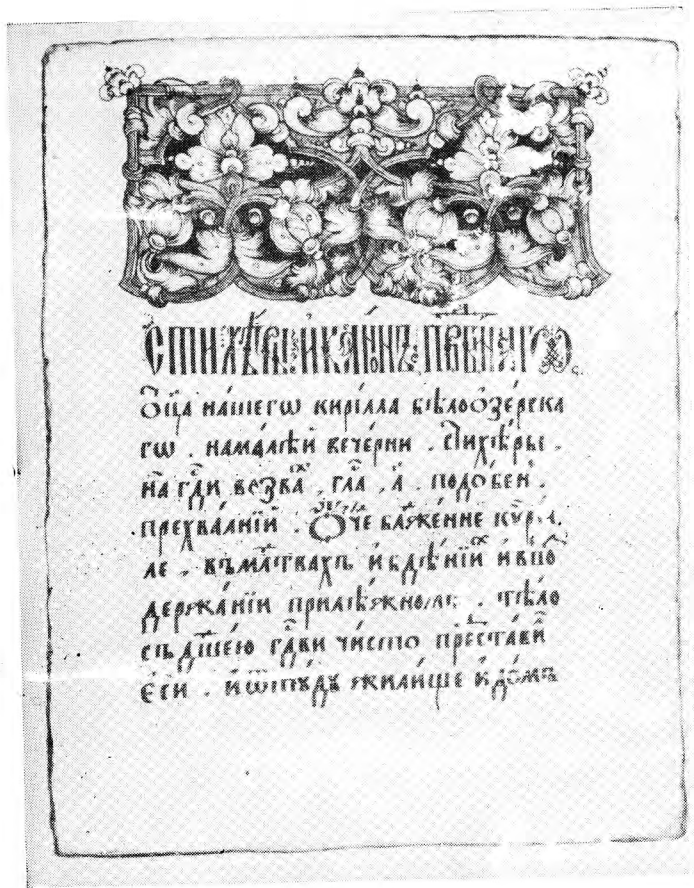 стихѣры и канонъ прпбнагѡ
Ѻц҃а нашегѡ кирилла бѣлоѻзерска
гѡ . на малѣй вечерни . стихѣры .
на гдⷭ҇и возвах , гла , а҃ . подобен .
прехвалнїи . Ѻ҆че блаженне кѷри
ле . въ млтвахъ и бдѣнїи и въꙁо
держанїи прилѣжному . тѣло
съ дш҃ею гдⷭ҇ви чисто представи
єси . и ѿтꙋдꙋ жилище и домъ